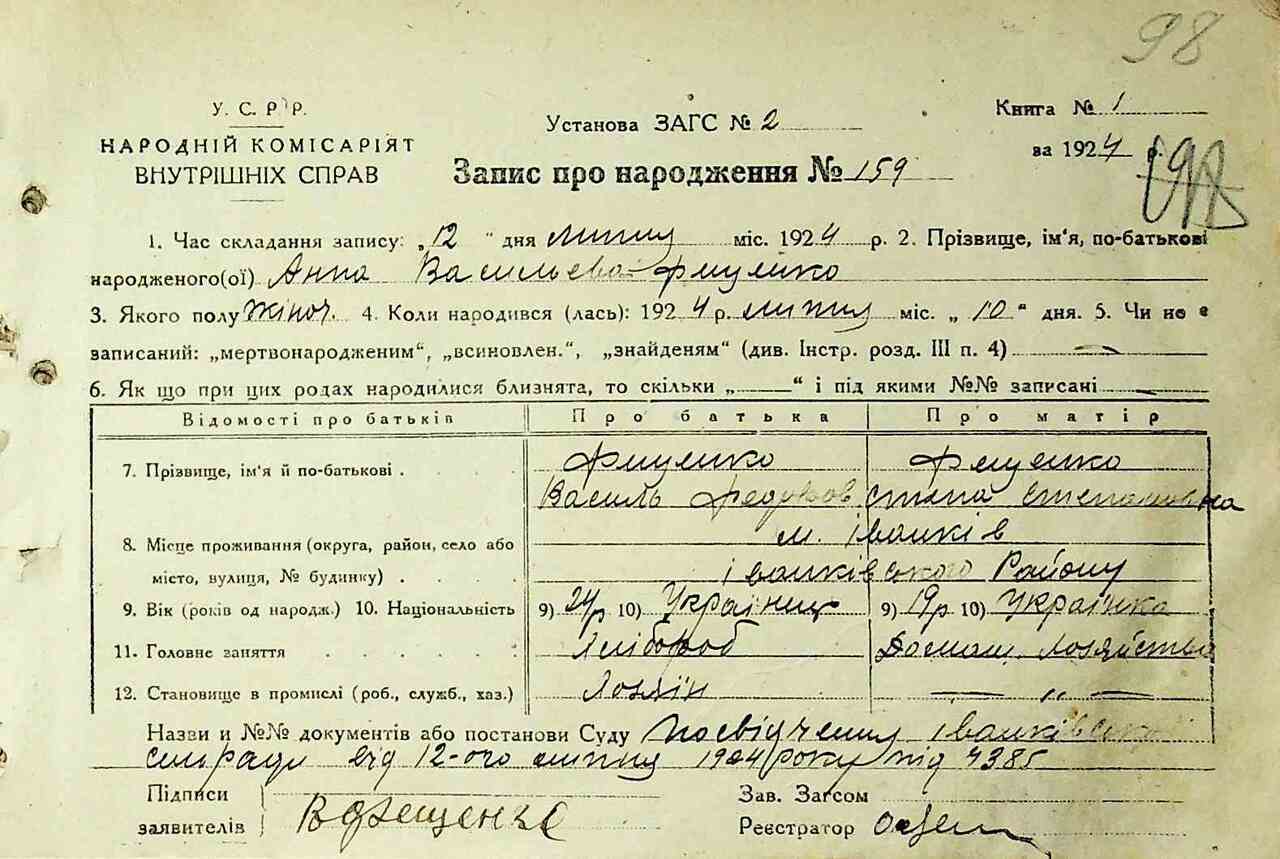 98
У. С. Р Р.
НАРОДНІЙ КОМІСАРІЯТ
ВНУТРІШНІХ СПРАВ
Установа ЗАГС № 2
Запис про народження № 159
Книга № 1
за 1924 р.
1. Час складання запису: „12 " дня липця міс. 1924 р. 2. Прізвище, ім'я, по-батькові
народженого(ої) Анна Васильєва Фищенко
3. Якого полу Жіноч. 4. Коли народився (лась): 1924 р. липця міс. „ 10 " дня. 5. Чи не є
записаний: „мертвонародженим", „всиновлен.", „знайденям" (див. Інстр. розд. III п. 4)
6. Як що при цих родах народилися близнята, то скільки „ " і під якими №№ записані
Відомості про батьків Про батька Про матір
7. Прізвище, ім'я й по-батькові . Фищенко Фищенко
Василь Федоров Степановна
8. Місце проживання (округа, район, село або м. Іванків
місто, вулиця, № будинку) . Іванківського Району
9. Вік (років од народж.) 10. Національність 9) 24р 10) Українец 9) 19р 10) Українка
11. Головне заняття Хлібороб Домаш. хозяйство
12. Становище в промислі (роб., служб., хаз.) Хозяїн — „ —
Назви и №№ документів або постанови Суду Посвідчення Іванківської
сільради від 12-ого липця 1924 року під 4385
Підписи
заявителів ВФещенко
Зав. Загсом
Реєстратор